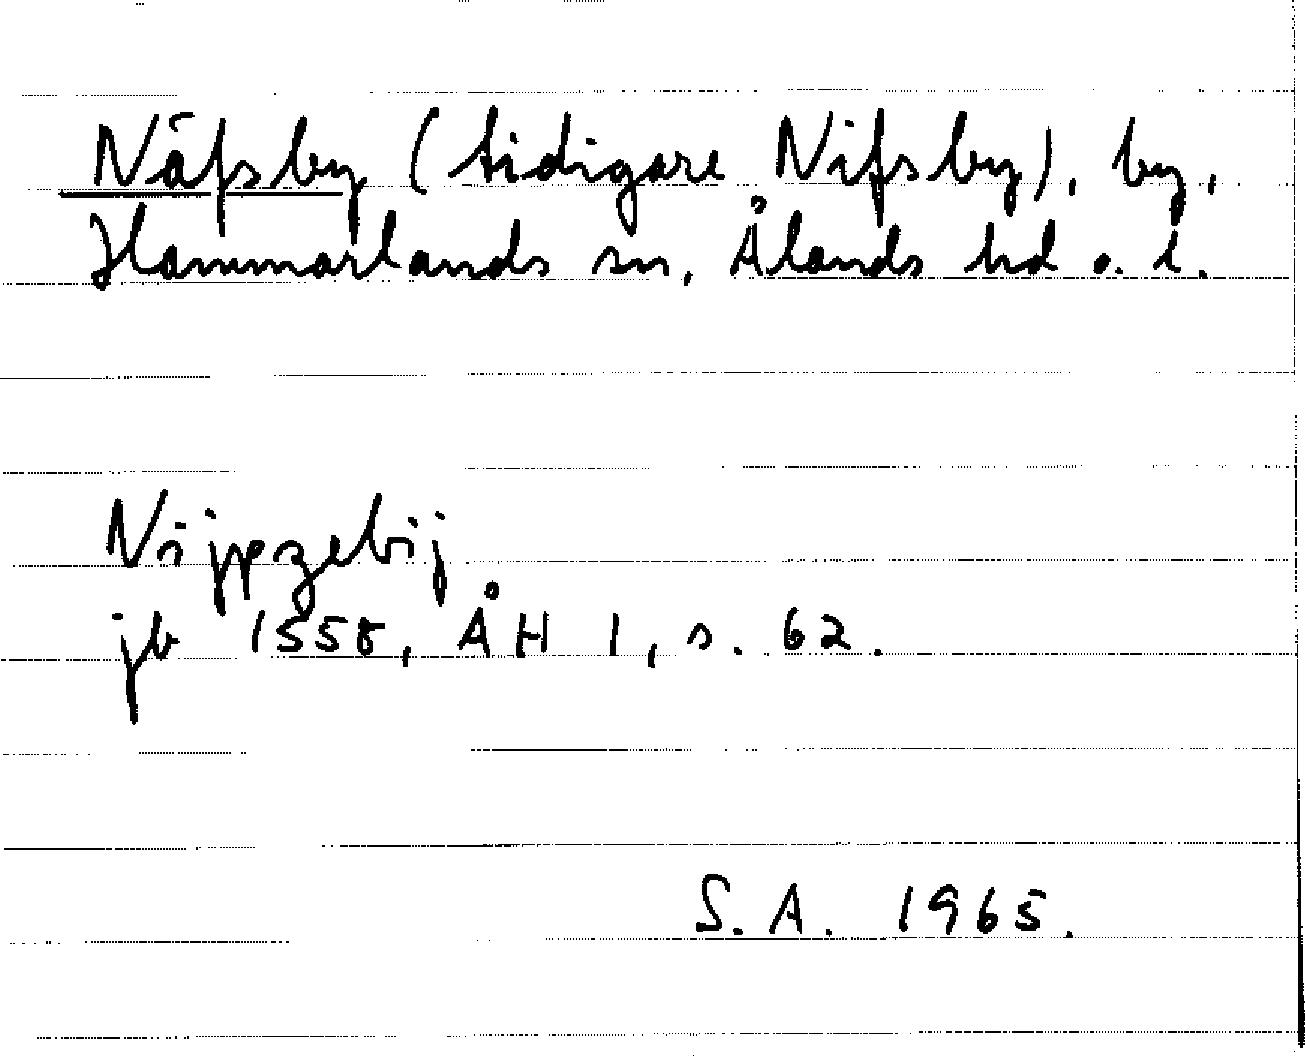 Näfsby (tidigare Nifsby), by,
Hammarlands sn, Ålands hd o. l.
Nijppzebij
jb 1558, ÅH 1, s. 62.
S.A. 1965.